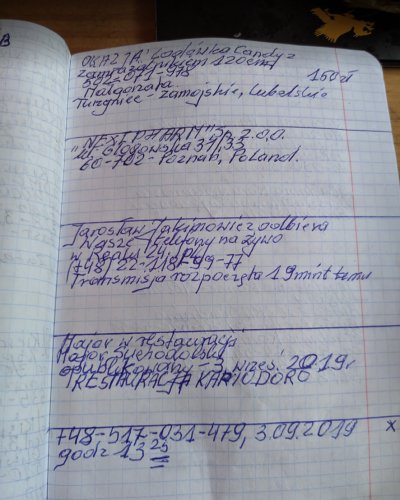 B
OKAZJA! Lodówka Candy z
zamrażalnikiem 120 cm
502-071-975
150 zł
Małgorzata
Turzyniec - zamojskie, lubelskie
"NEXT PHARM" Sp. z.o.o.
ul. Głogowska 31/33
60-702 - Poznań, Poland.
Jarosław Jakimowicz odbiera
Wasze telefony na żywo
w Realu 24. PL
(+48) 22-118-99-77
Transmisja rozpoczęta 19 mint temu
Major w restauracji
Major Suchodolski
opublikowany - 3 wrześ. 2019r
RESTAURACJA KARIODORO
+48-517-031-479, 3.09.2019
x
godz 13 25